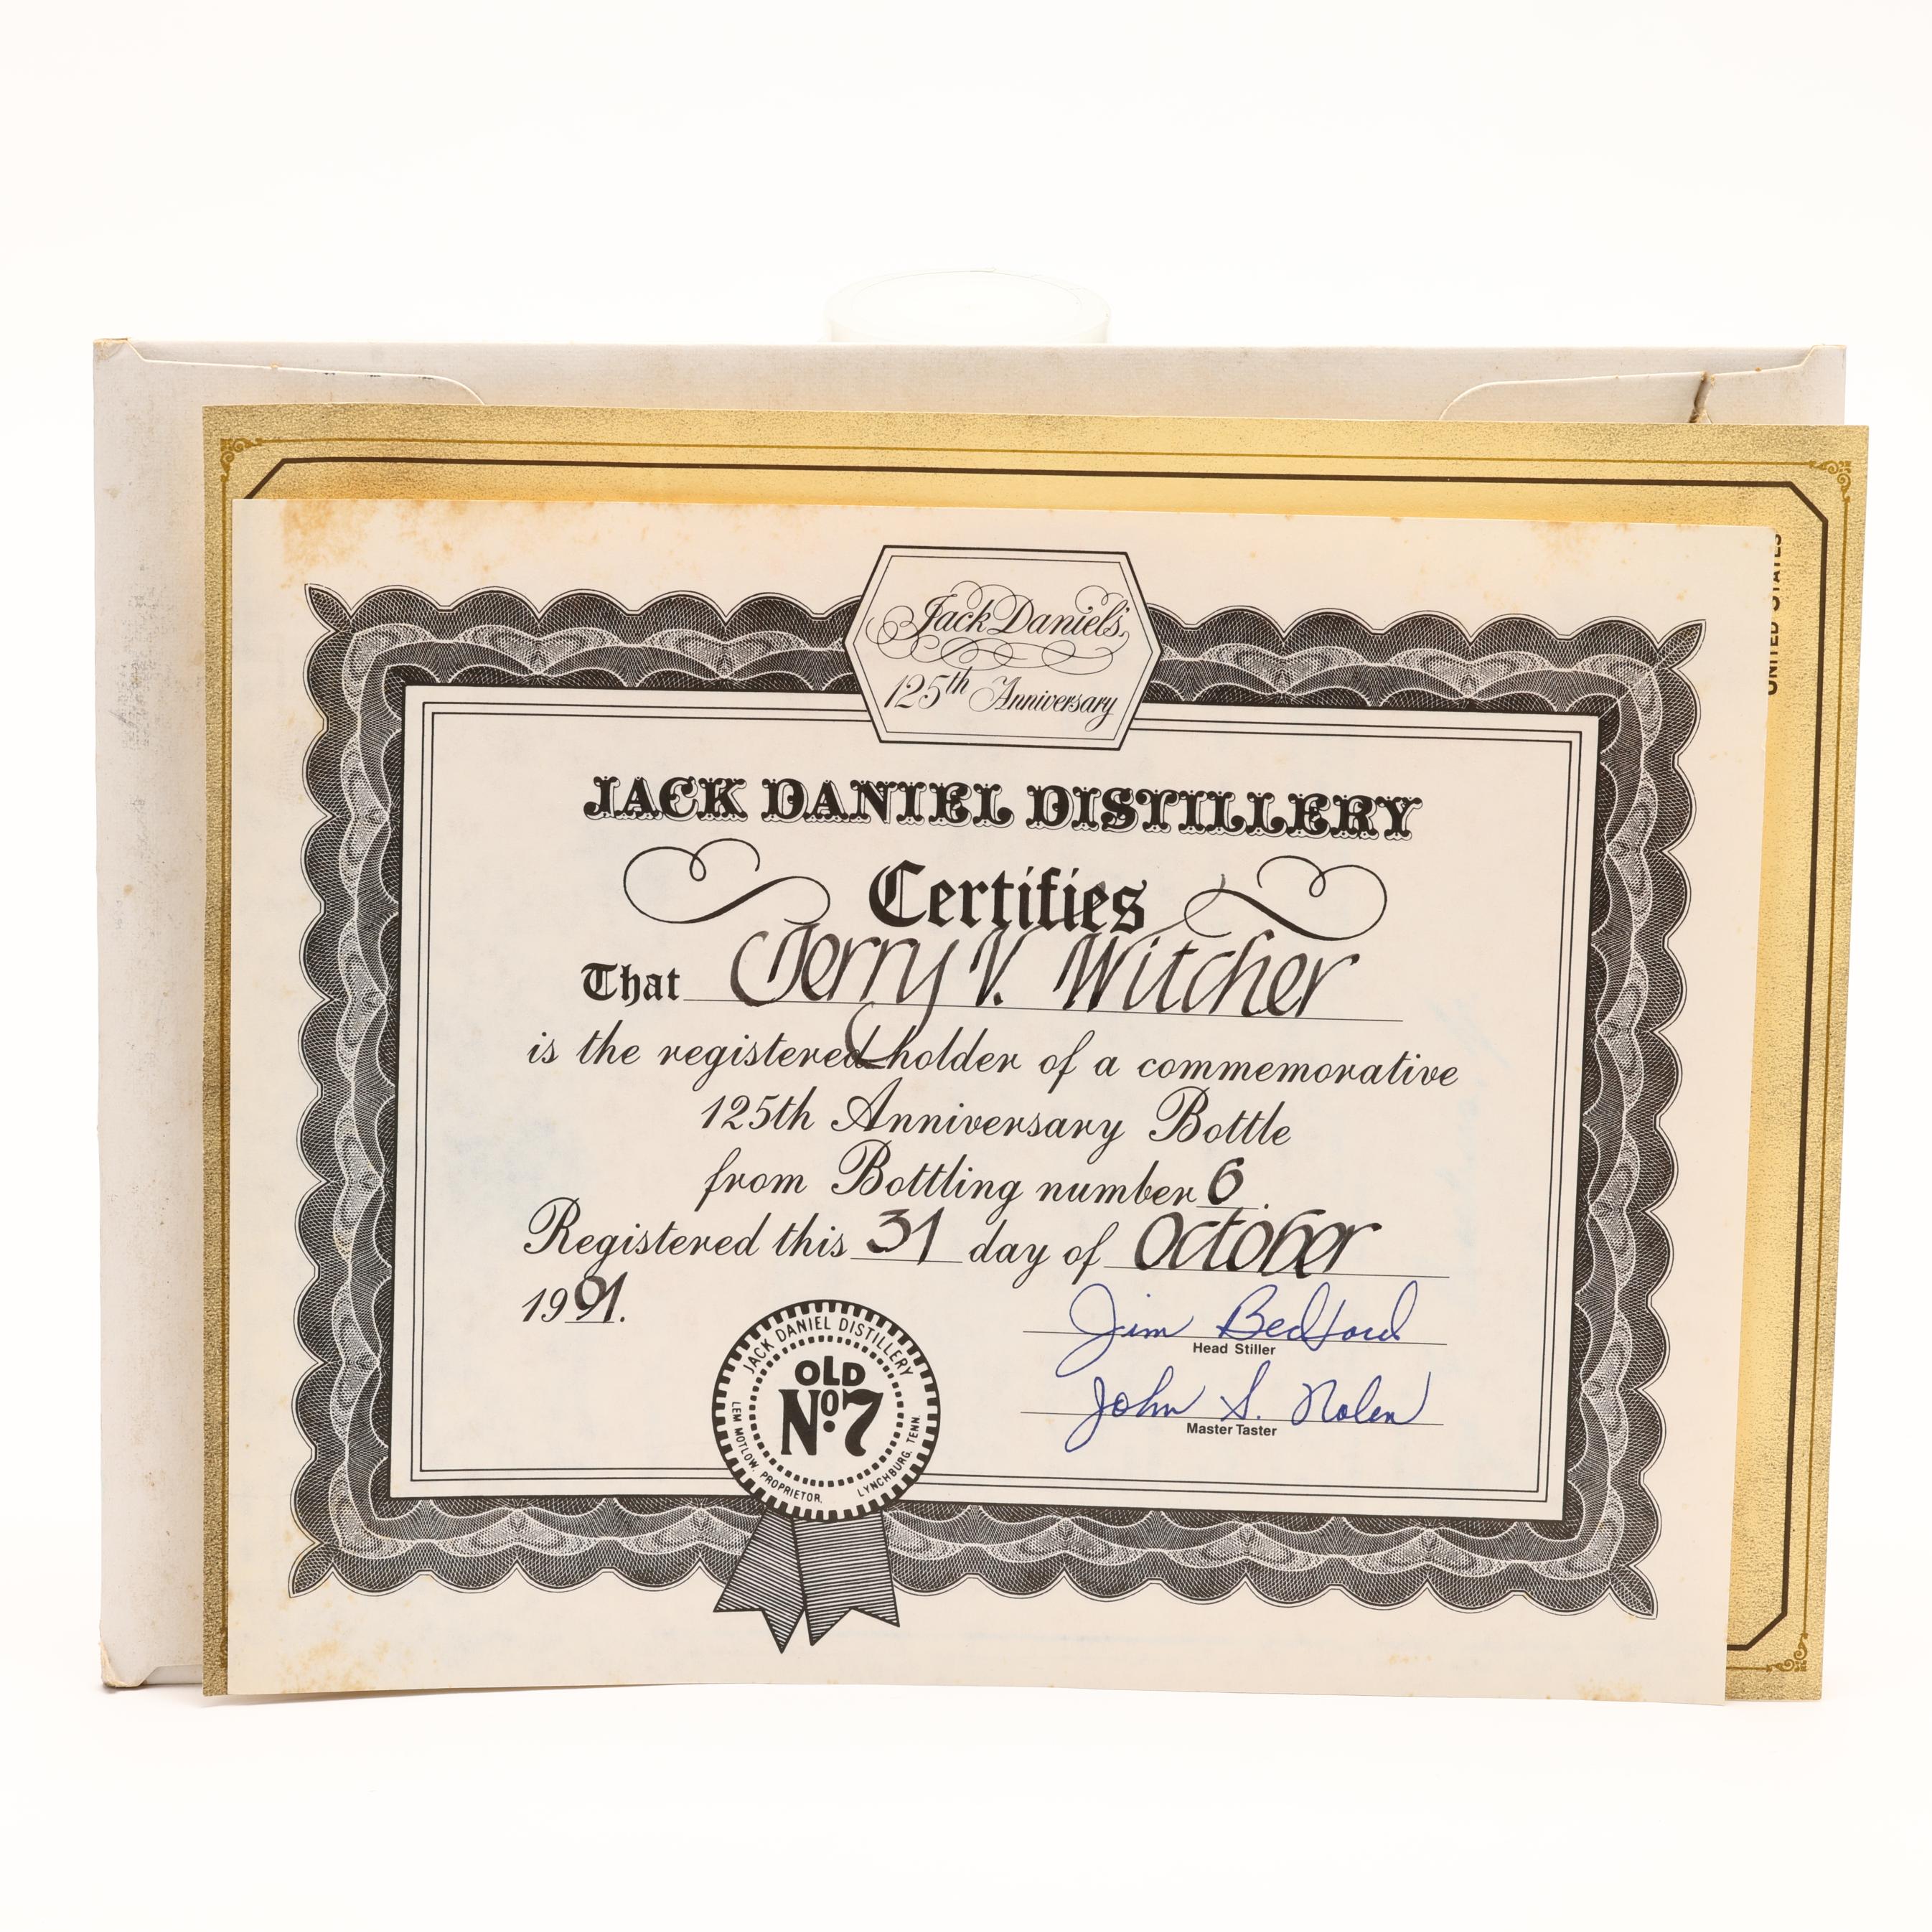 Jack Daniel's
125th Anniversary
JACK DANIEL DISTILLERY
Certifies
That Jerry V. Witcher
is the registered holder of a commemorative
125th Anniversary Bottle
from Bottling number 6.
Registered this 31 day of October
1991.
Jim Bedford
Head Stiller
John S. Nolen
Master Taster
JACK DANIEL DISTILLERY
OLD
No. 7
LEM MOTLOW, PROPRIETOR. LYNCHBURG, TENN.
UNITED STATES